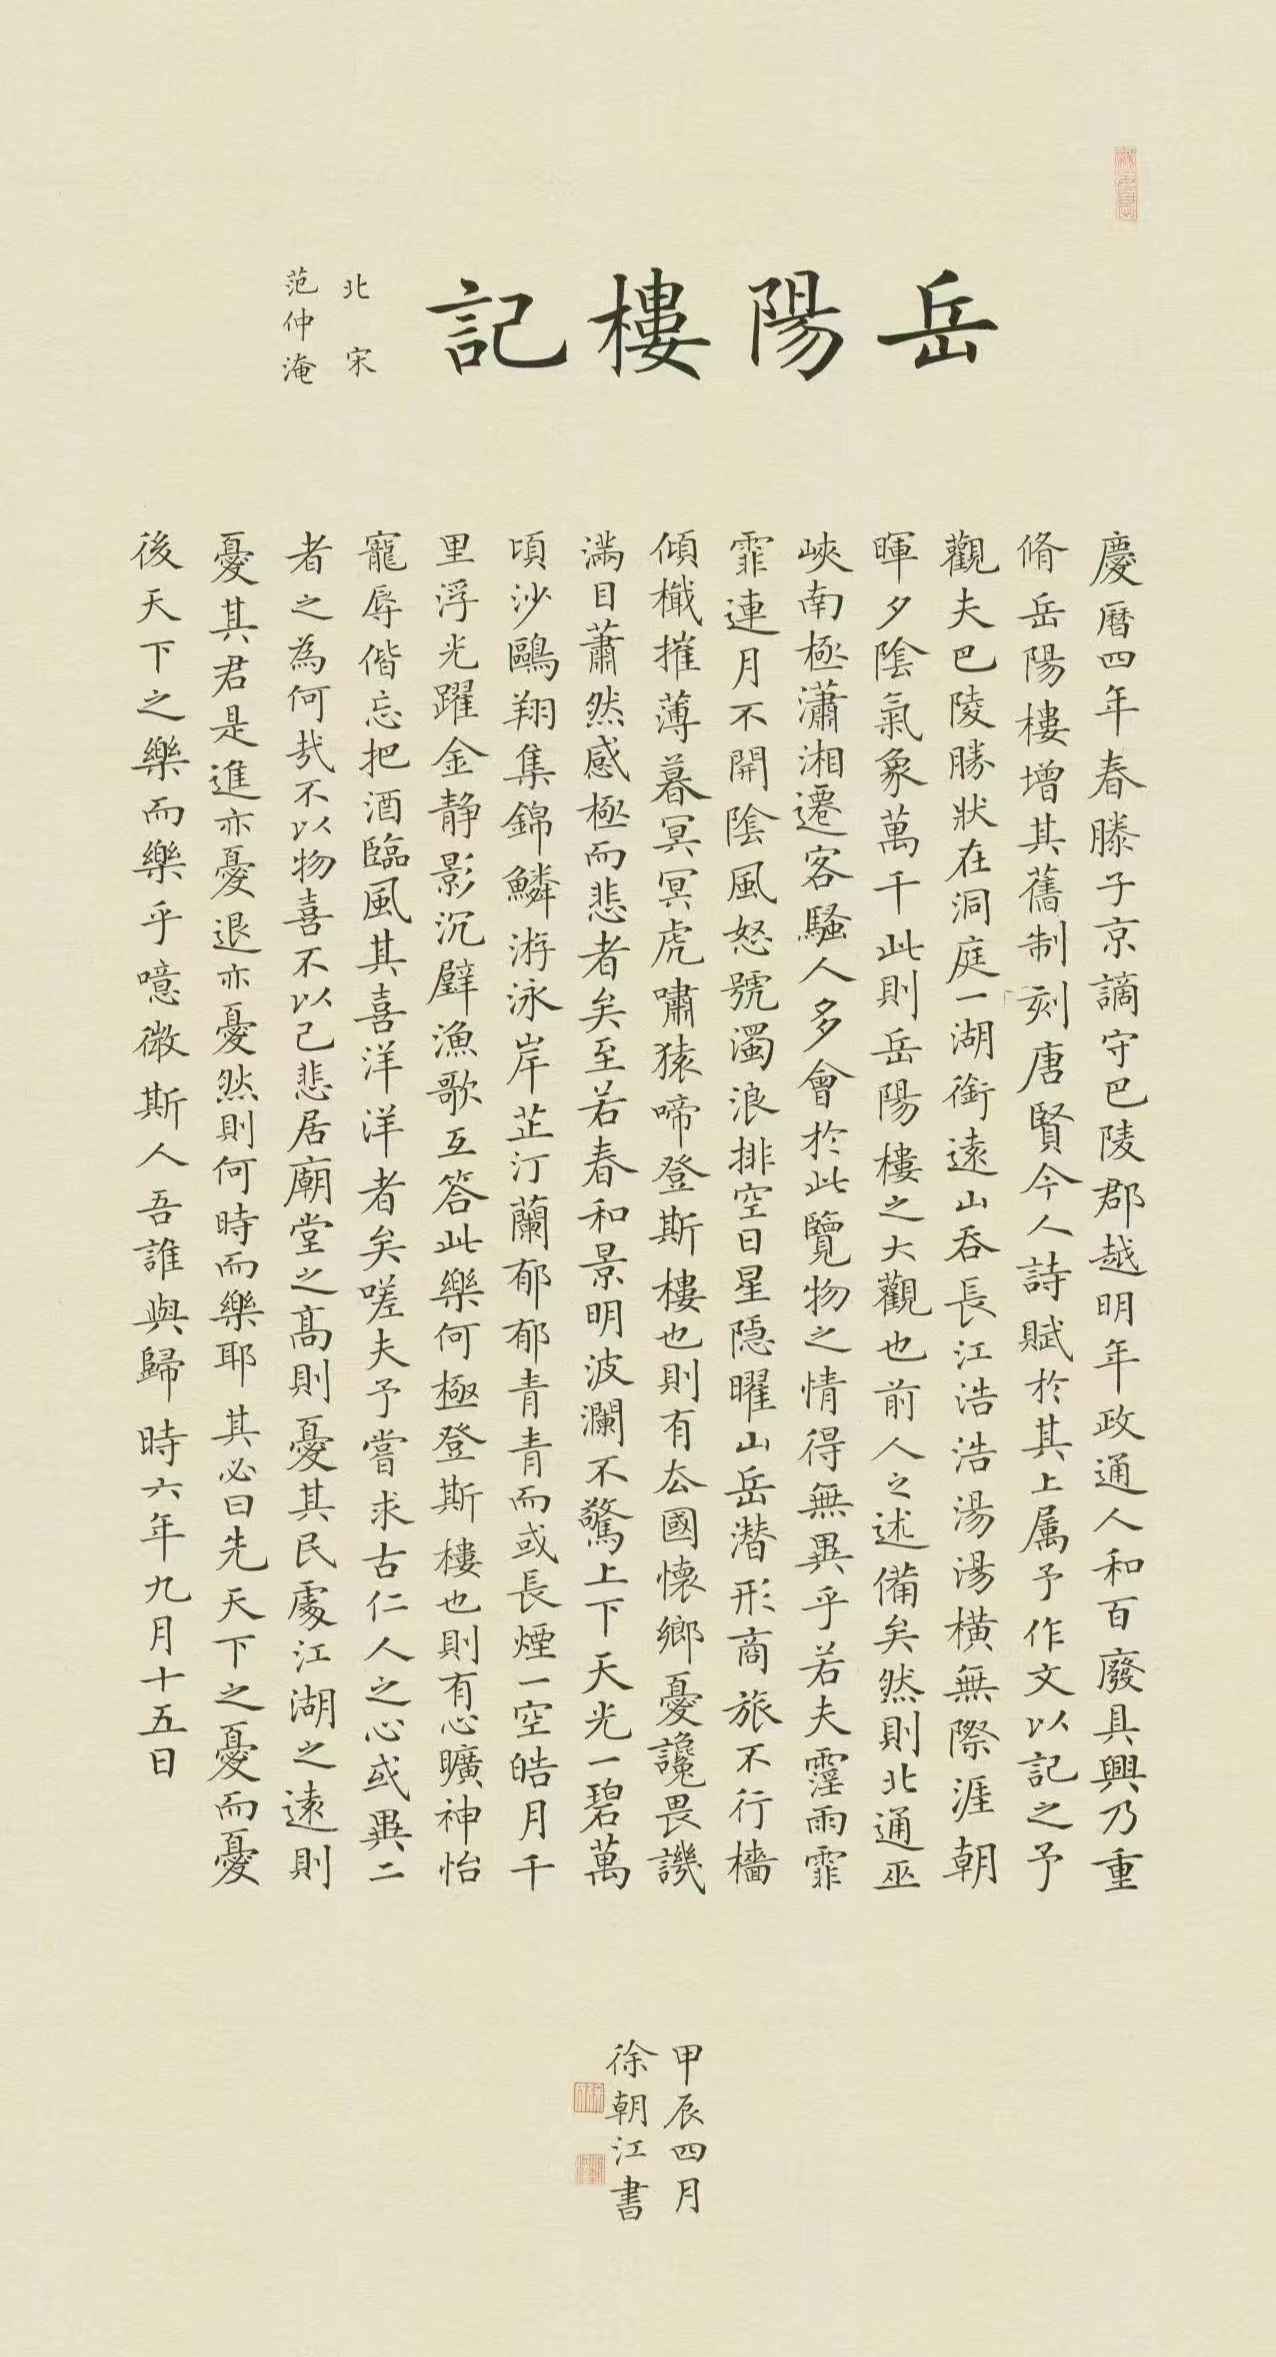 岳陽樓記
北宋
范仲淹
慶曆四年春滕子京謫守巴陵郡越明年政通人和百廢具興乃重
脩岳陽樓增其舊制刻唐賢今人詩賦於其上属予作文以記之予
觀夫巴陵勝狀在洞庭一湖銜遠山吞長江浩浩湯湯橫無際涯朝
暉夕陰氣象萬千此則岳陽樓之大觀也前人之述備矣然則北通巫
峽南極瀟湘遷客騷人多會於此覽物之情得無異乎若夫霪雨霏
霏連月不開陰風怒號濁浪排空日星隠曜山岳潛形商旅不行檣
傾檝摧薄暮冥冥虎嘯猿啼登斯樓也則有去國懷鄉憂讒畏譏
滿目蕭然感極而悲者矣至若春和景明波瀾不驚上下天光一碧萬
頃沙鷗翔集錦鱗游泳岸芷汀蘭郁郁青青而或長煙一空皓月千
里浮光躍金静影沉璧漁歌互答此樂何極登斯樓也則有心曠神怡
寵辱偕忘把酒臨風其喜洋洋者矣嗟夫予嘗求古仁人之心或異二
者之為何哉不以物喜不以己悲居廟堂之高則憂其民處江湖之遠則
憂其君是進亦憂退亦憂然則何時而樂耶其必曰先天下之憂而憂
後天下之樂而樂乎噫微斯人吾誰與歸時六年九月十五日
甲辰四月
徐朝江書